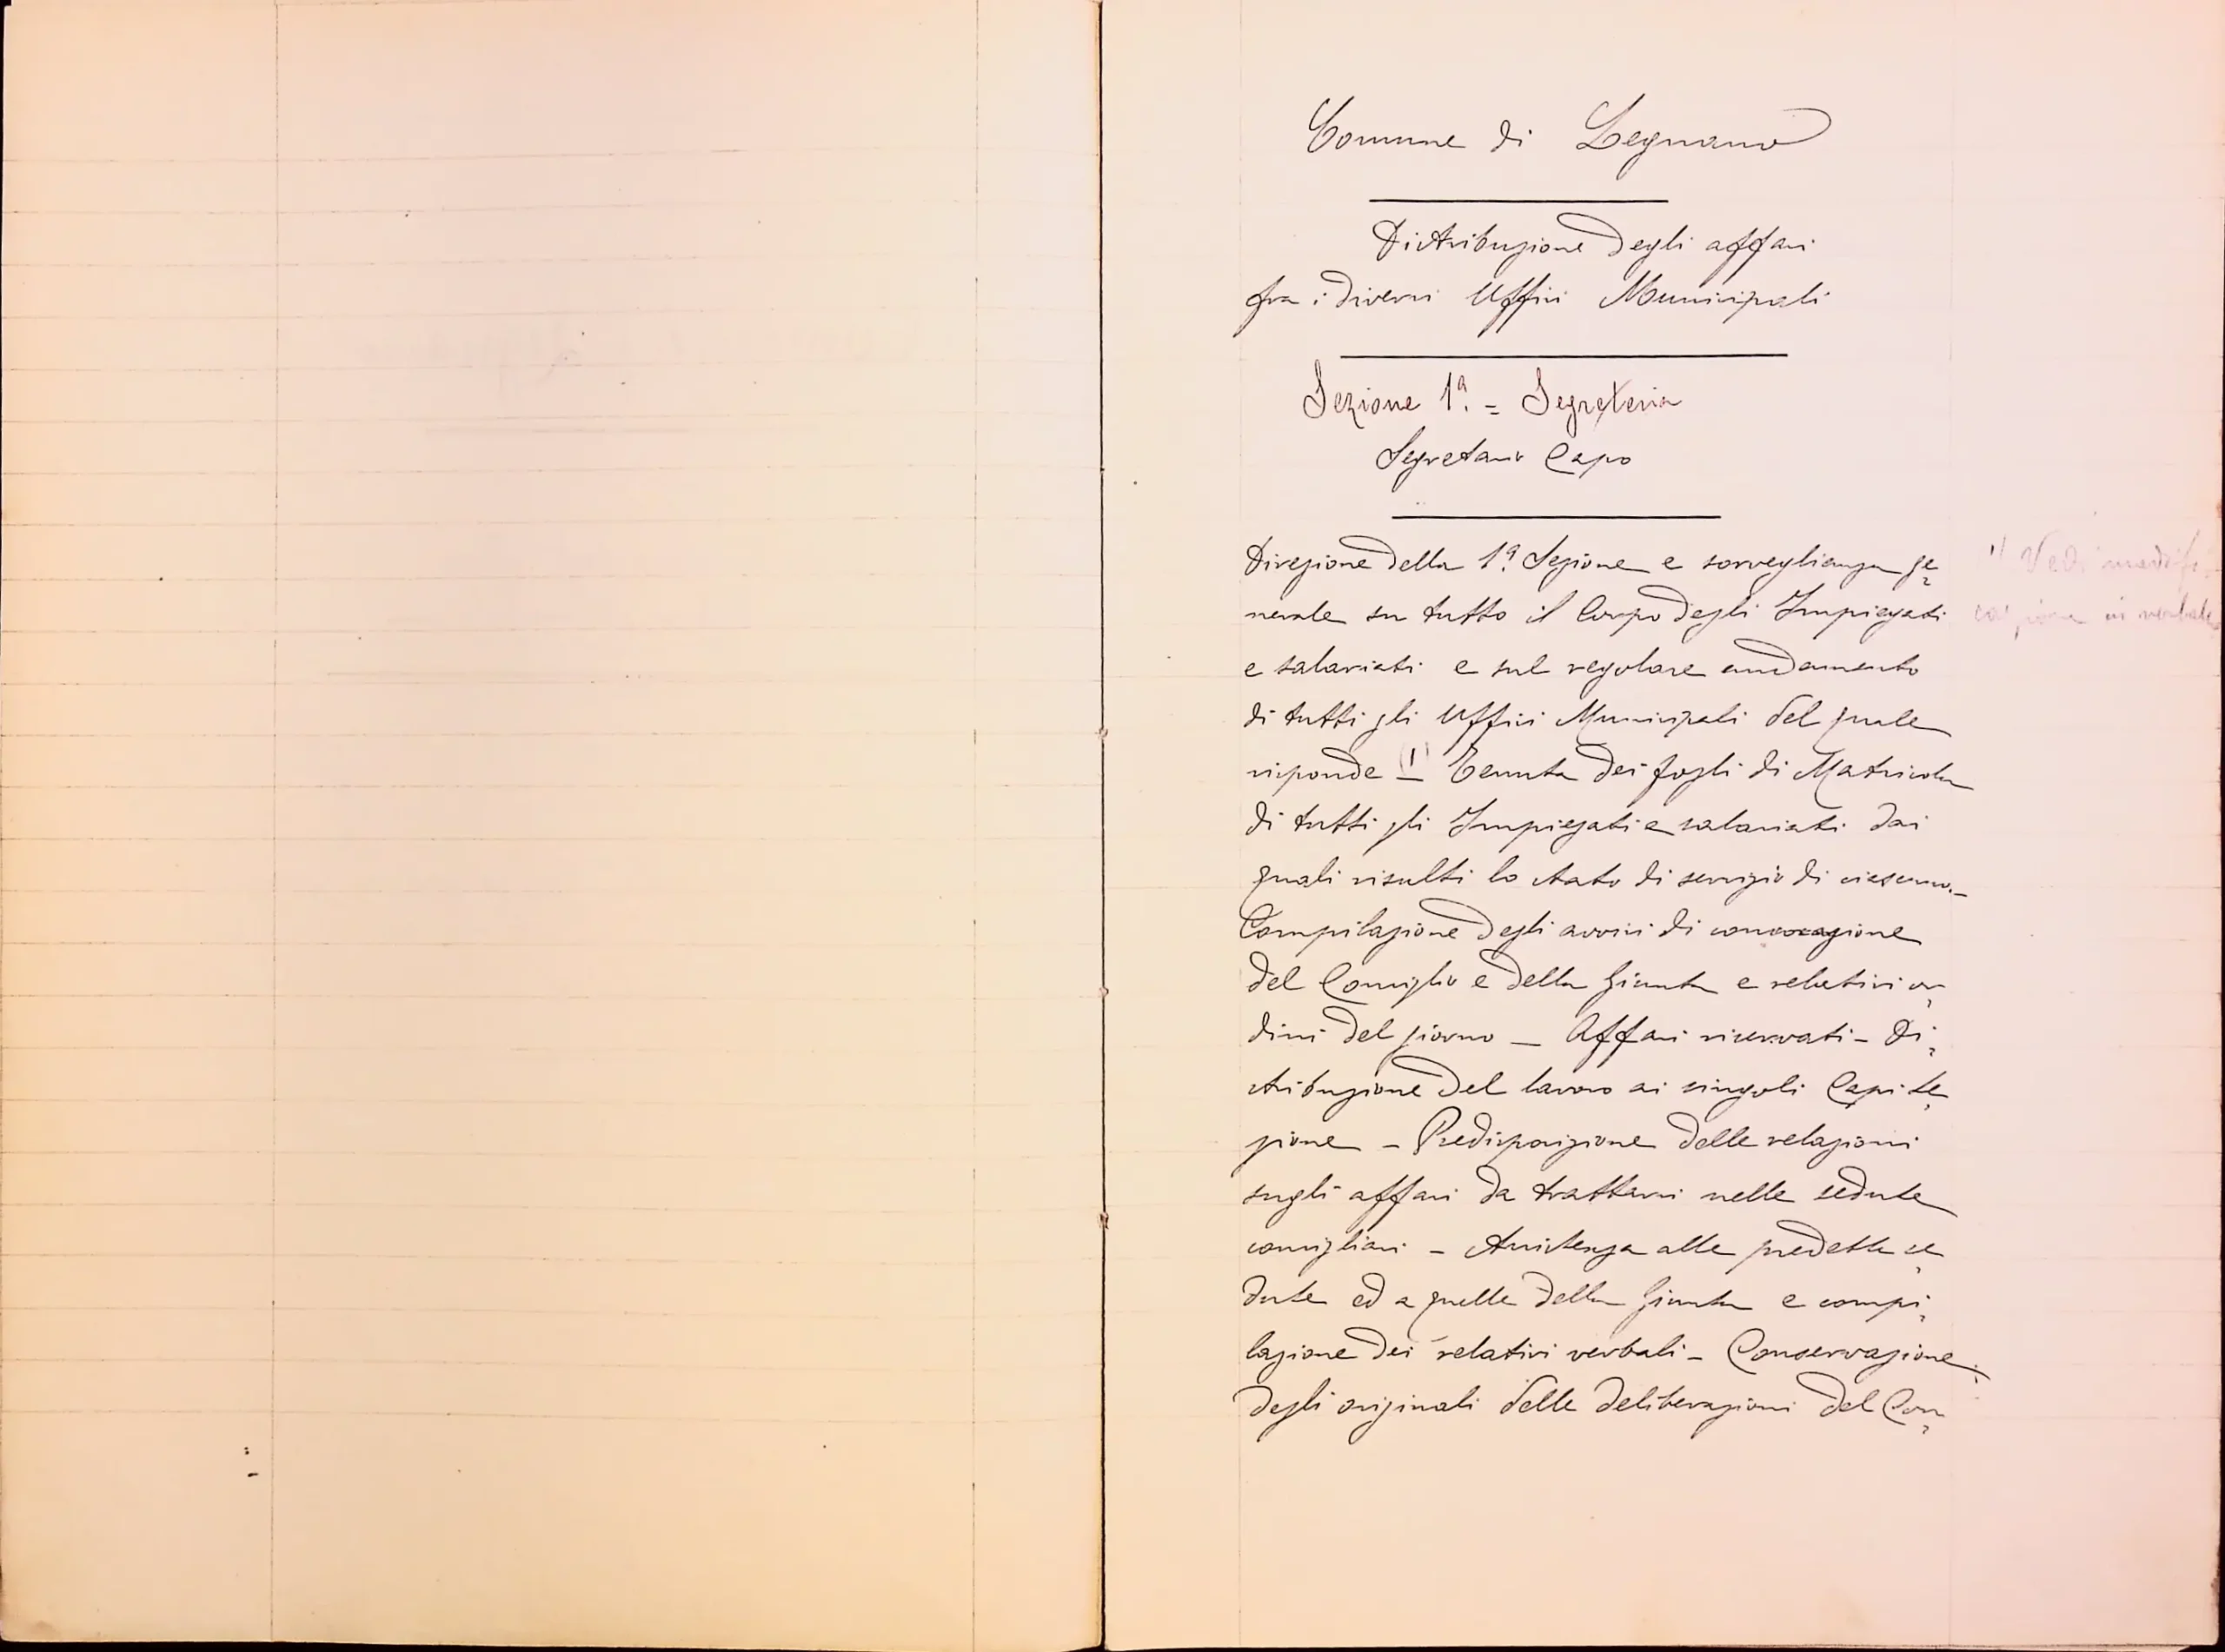 Comune di Legnano
Distribuzione degli affari
fra i diversi Uffici Municipali
Sezione 1ª. = Segreteria
Segretario Capo
Direzione della 1ª. Sezione e sorveglianza ge=
nerale su tutto il Corpo degli Impiegati
e salariati e sul regolare andamento
di tutti gli Uffici Municipali del quale
risponde (1) Tenuta dei fogli di Matricola
di tutti gli Impiegati e salariati dai
quali risulti lo stato di servizio di ciascuno. _
Compilazione degli avvisi di convocazione
del Consiglio e della Giunta e relativi or=
dini del giorno _ Affari riservati _ Di=
stribuzione del lavoro ai singoli Capi Se=
zione _ Predisposizione delle relazioni
sugli affari da trattarsi nelle sedute
consigliari _ Assistenza alle predette se=
dute ed a quelle della Giunta e compi=
lazione dei relativi verbali _ Conservazione
degli originali delle deliberazioni del Con=
1) Vedi modifi=
cazione in verbale